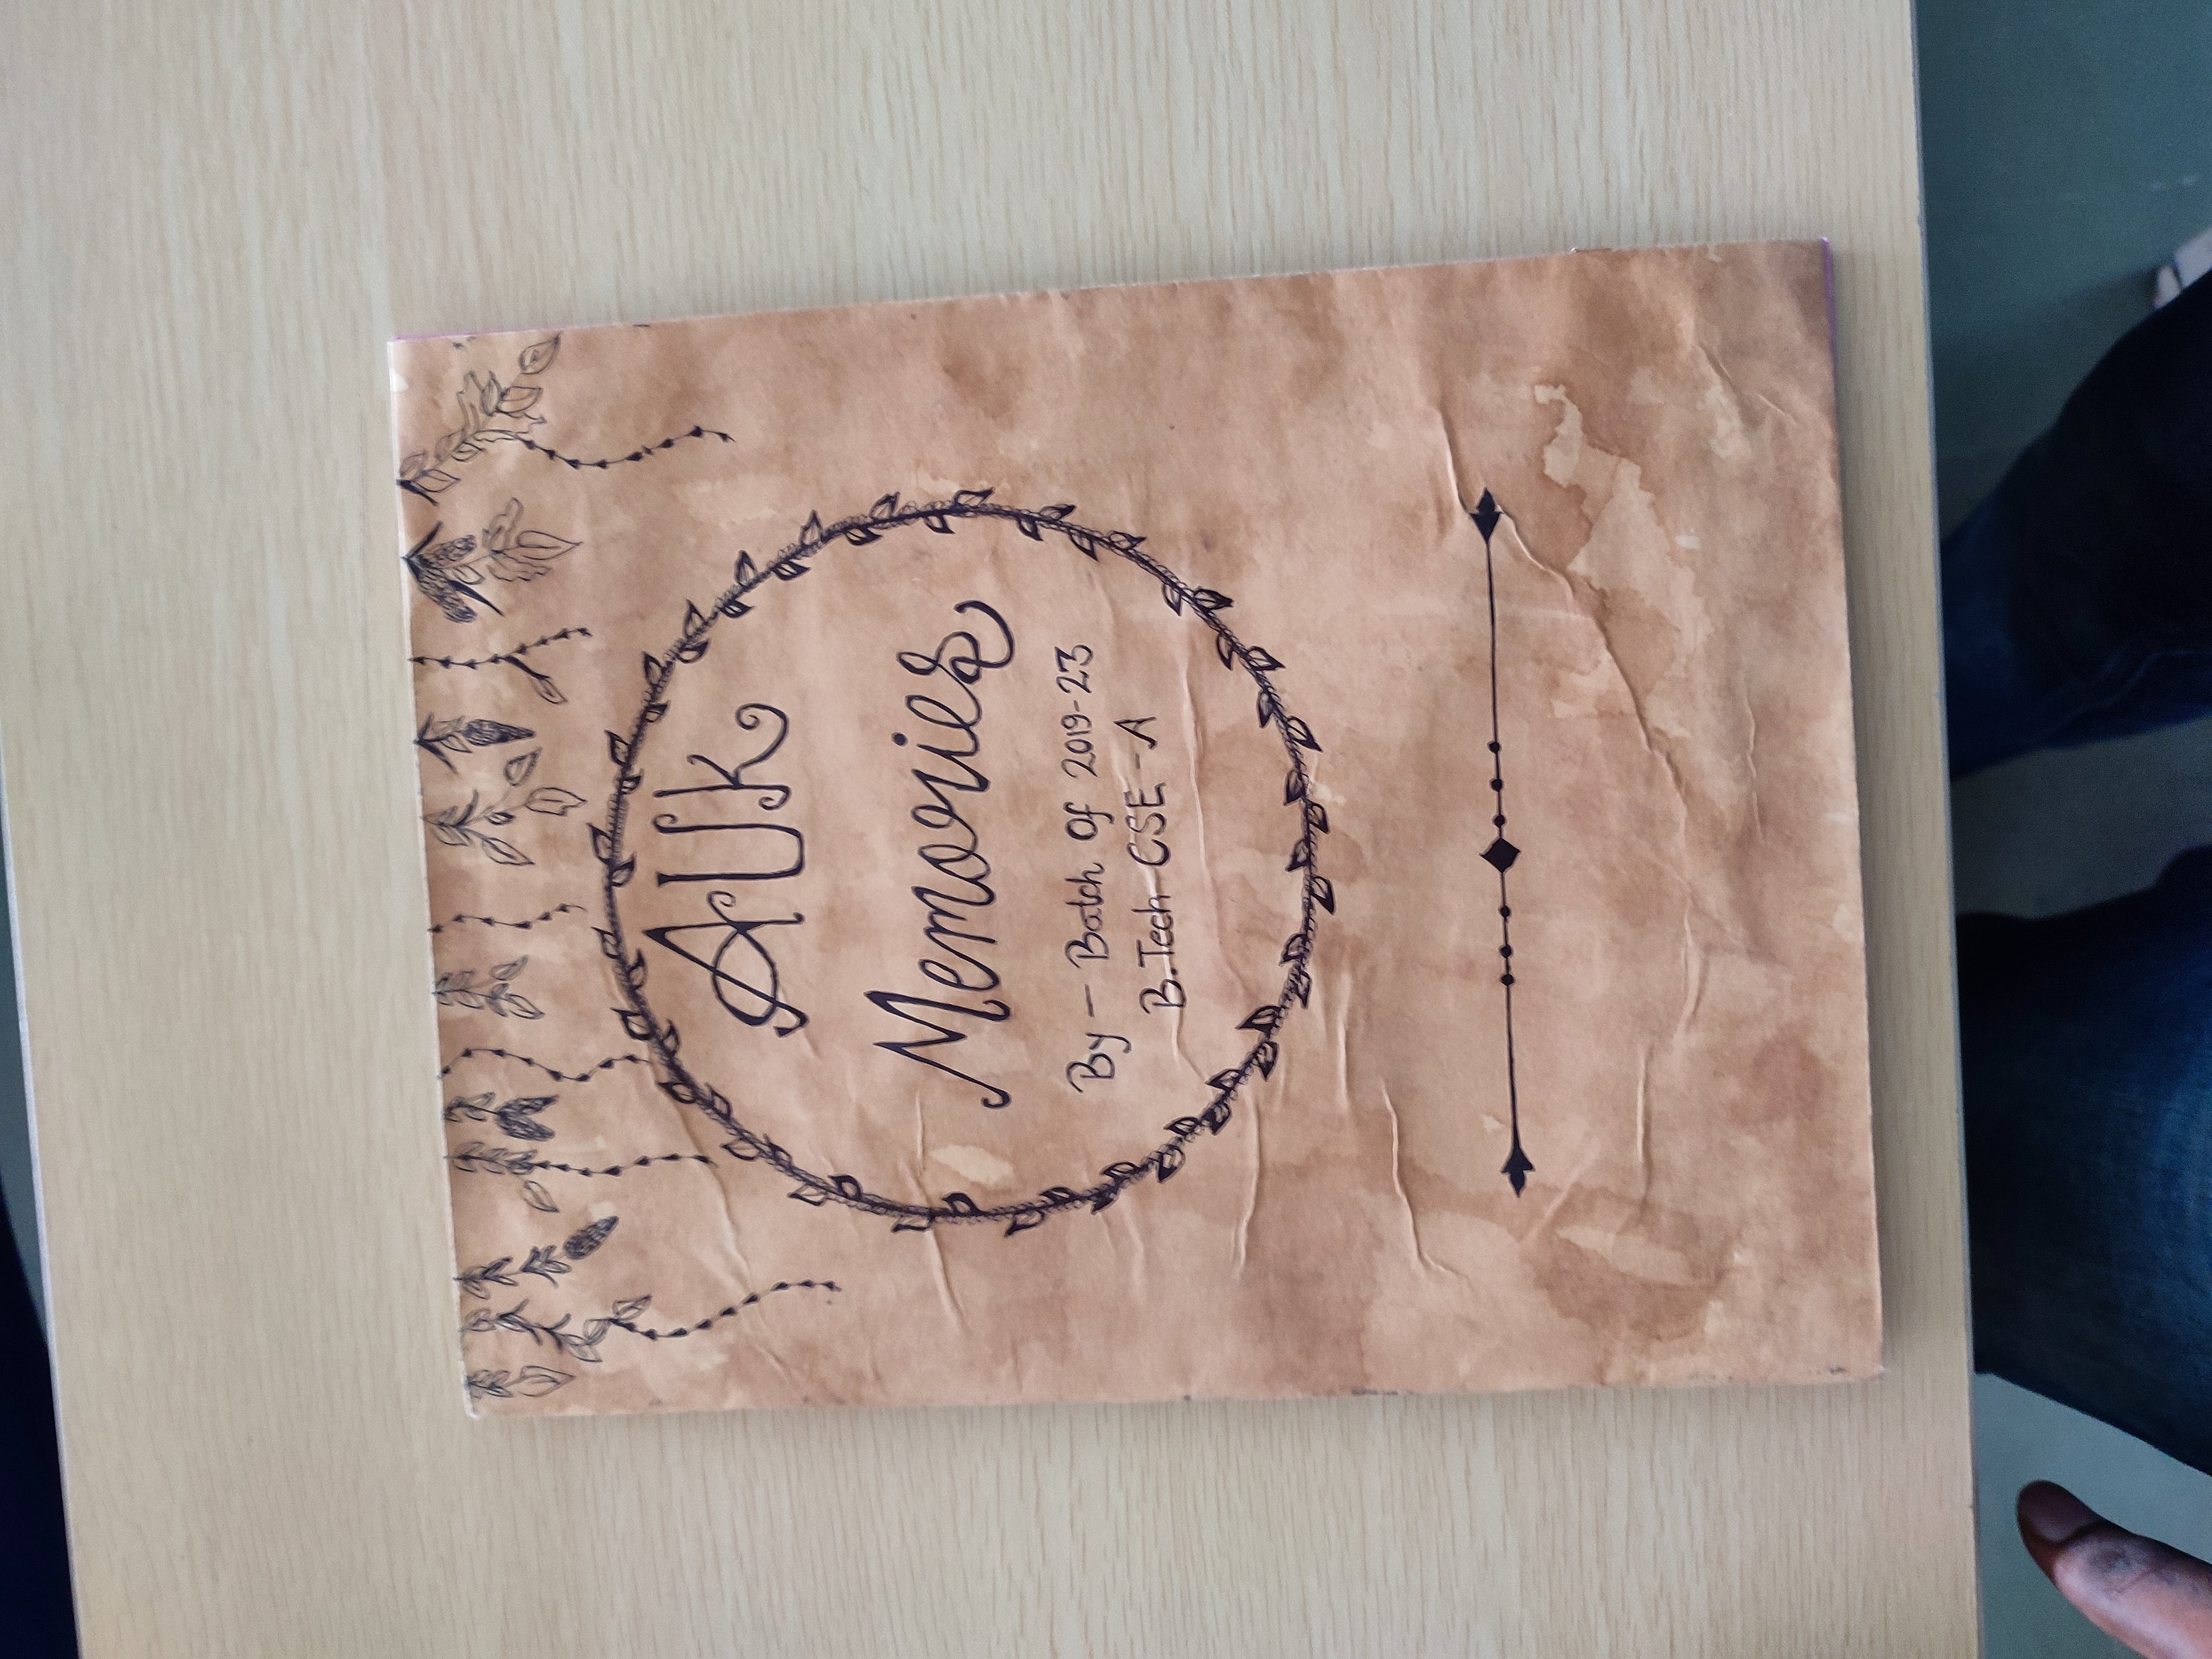 AUK
Memories
By - Batch Of 2019-23
B.Tech CSE - A